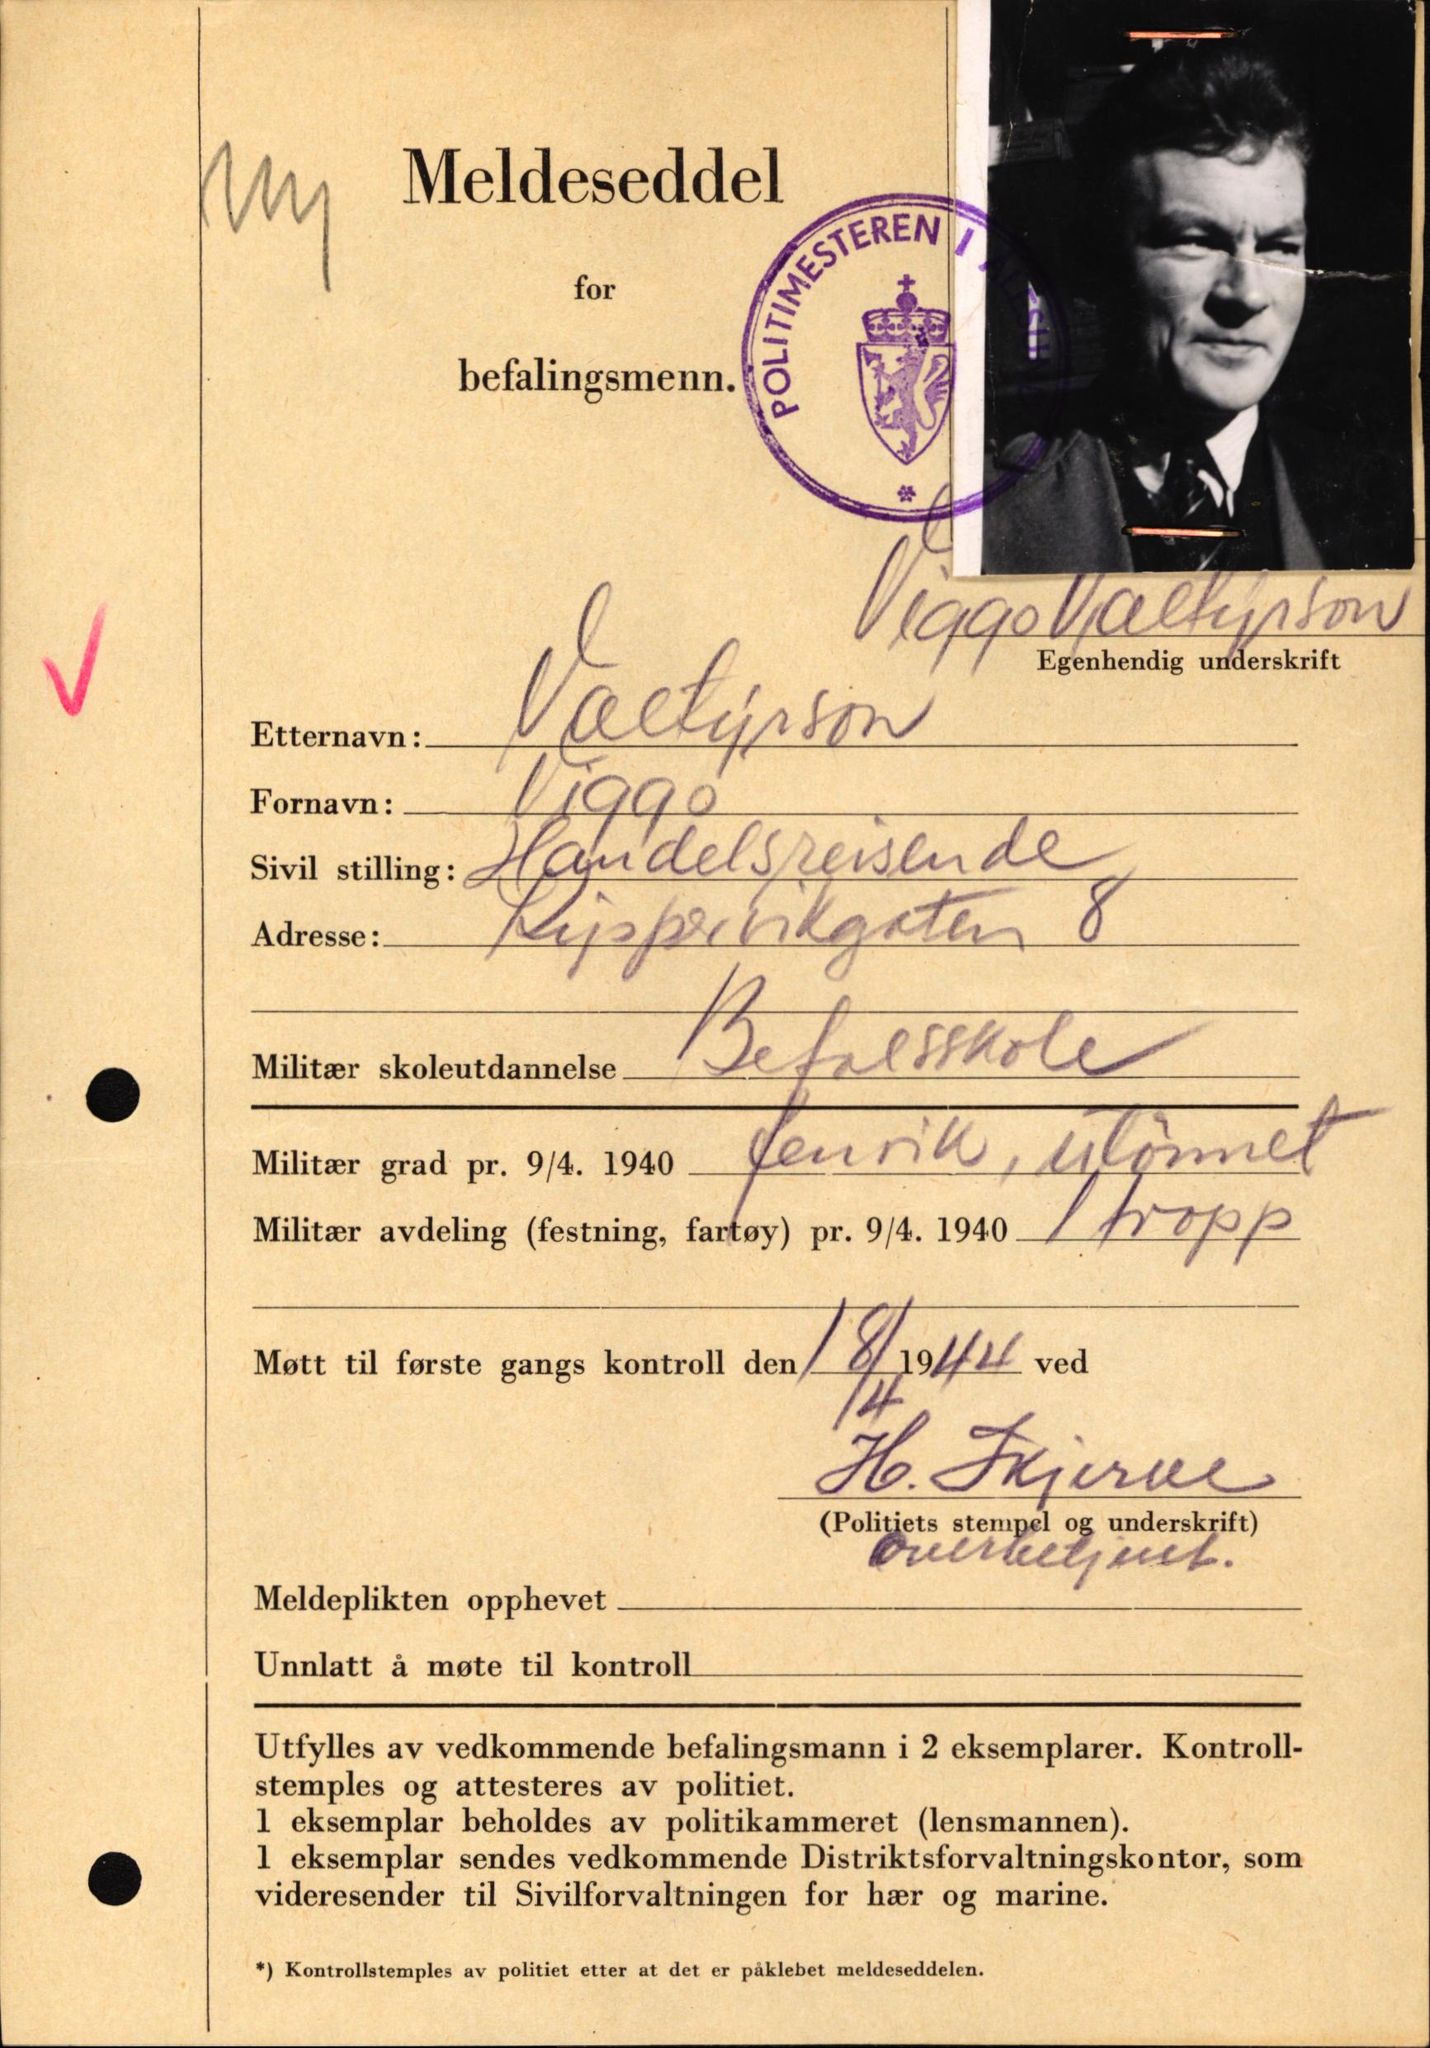 ny
Meldeseddel
for
befalingsmenn.
POLITIMESTEREN I ÅLESU
Viggo Valtyrson
Egenhendig underskrift
Etternavn: Valtyrson
Fornavn: Viggo
Sivil stilling: Handelsreisende
Adresse: Kippervikgaten 8
Militær skoleutdannelse Befalsskole
Militær grad pr. 9/4. 1940 fenrik, ulönnet
Militær avdeling (festning, fartøy) pr. 9/4. 1940 1 tropp
Møtt til første gangs kontroll den 18/4 1944 ved
H. Skjerve
(Politiets stempel og underskrift)
overbetjent.
Meldeplikten opphevet
Unnlatt å møte til kontroll
Utfylles av vedkommende befalingsmann i 2 eksemplarer. Kontroll-
stemples og attesteres av politiet.
1 eksemplar beholdes av politikammeret (lensmannen).
1 eksemplar sendes vedkommende Distriktsforvaltningskontor, som
videresender til Sivilforvaltningen for hær og marine.
*) Kontrollstemples av politiet etter at det er påklebet meldeseddelen.